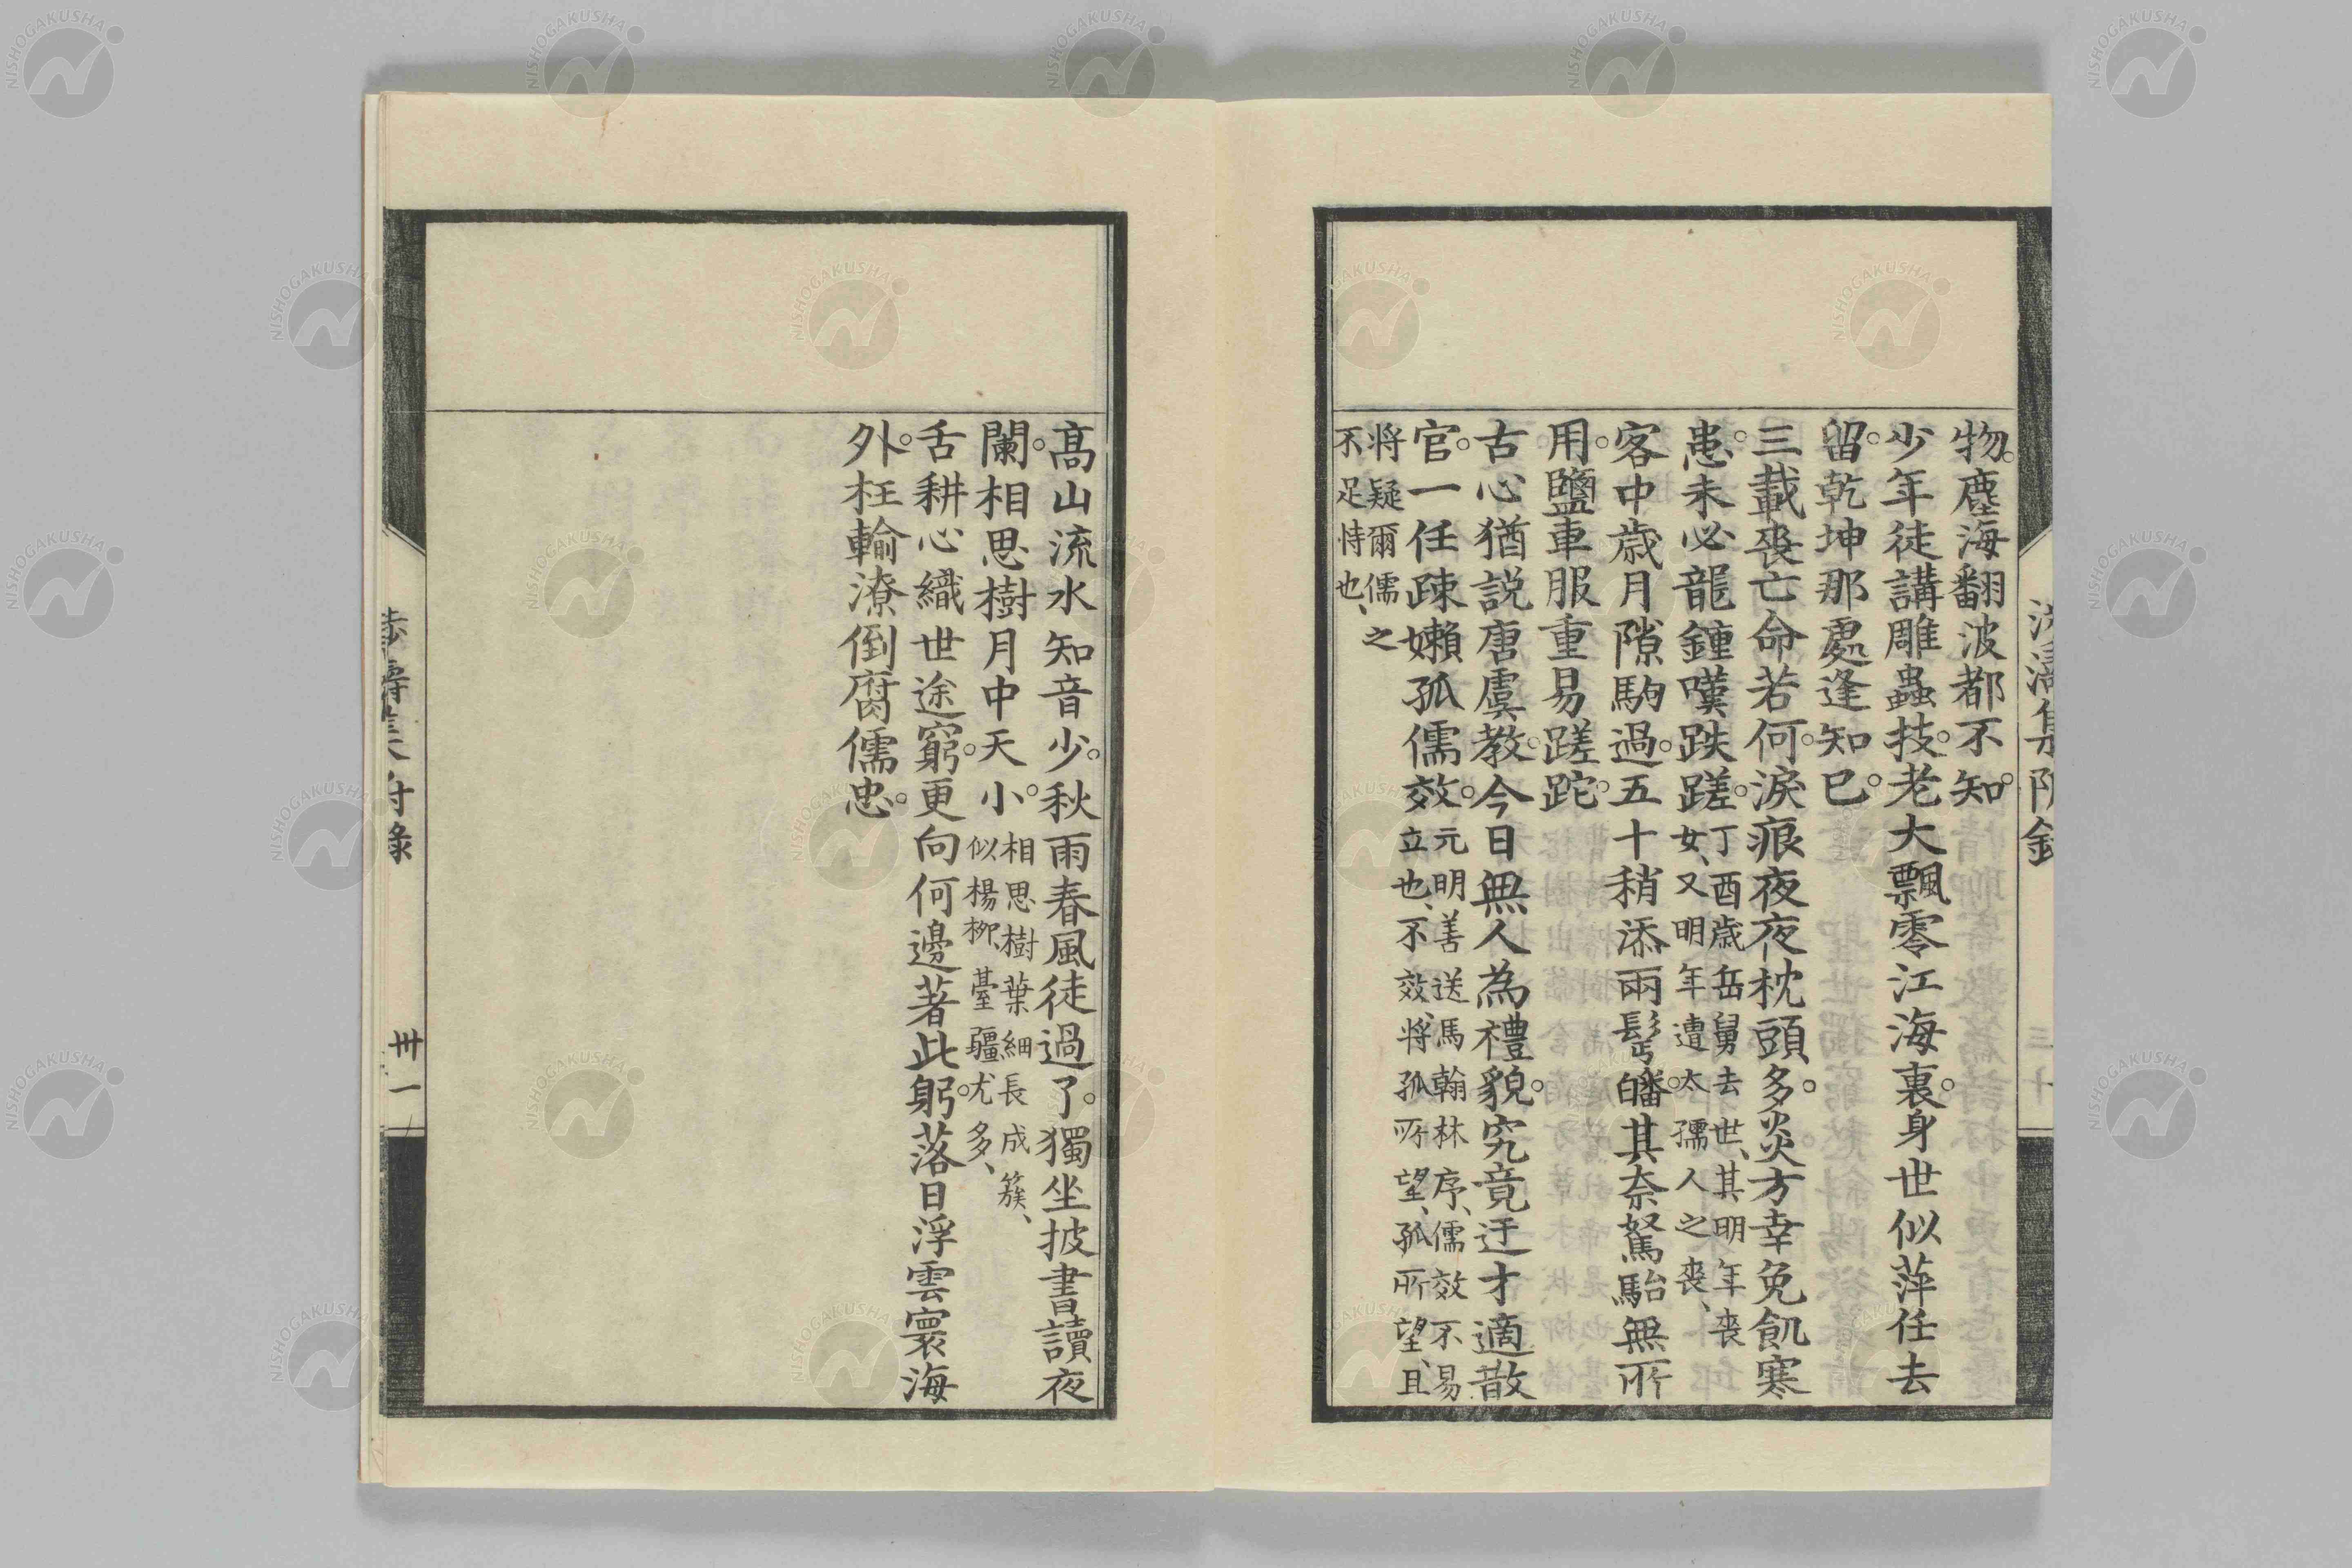 物。塵海翻波都不知。
少年徒講雕蟲技。老大飄零江海裏。身世似萍任去
留。乾坤那處逢知已。
三載喪亡命若何。淚痕夜夜枕頭多。炎方幸免飢寒
患。未必龍鍾嘆跌蹉。丁酉歲岳舅去世、其明年喪
女、又明年遭太孺人之喪、
客中歳月隙駒過。五十稍添兩鬂皤。其奈駑駘無所
用。鹽車服重易蹉跎。
古心猶説唐虞教。今日無人為禮貌。究竟迂才適散
官。一任疎嬾孤儒效。元明善送馬翰林序、儒效不易
立也、不效、將孤所望、孤所望、且
将疑爾儒之
不足恃也、
高山流水知音少。秋雨春風徒過了。獨坐披書讀夜
闌。相思樹月中天小。相思樹葉細長成簇、
似楊柳、臺疆尤多、
舌耕心織世途窮。更向何邊著此躬。落日浮雲寰海
外。枉輸潦倒腐儒忠。
附錄
卅一
NISHOGAKUSHA